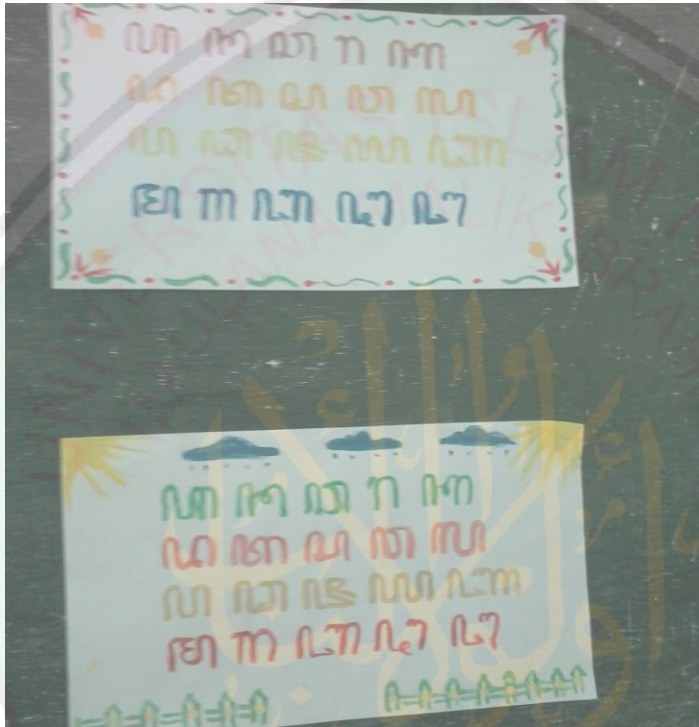 ꦲ ꦤ ꦕ ꦫ ꦏ
ꦢ ꦠ ꦱ ꦮ ꦭ
ꦥ ꦝ ꦗ ꦪ ꦚ
ꦩ ꦒ ꦧ ꦛ ꦔ
ꦲ ꦤ ꦕ ꦫ ꦏ
ꦢ ꦠ ꦱ ꦮ ꦭ
ꦥ ꦝ ꦗ ꦪ ꦚ
ꦩ ꦒ ꦧ ꦛ ꦔ